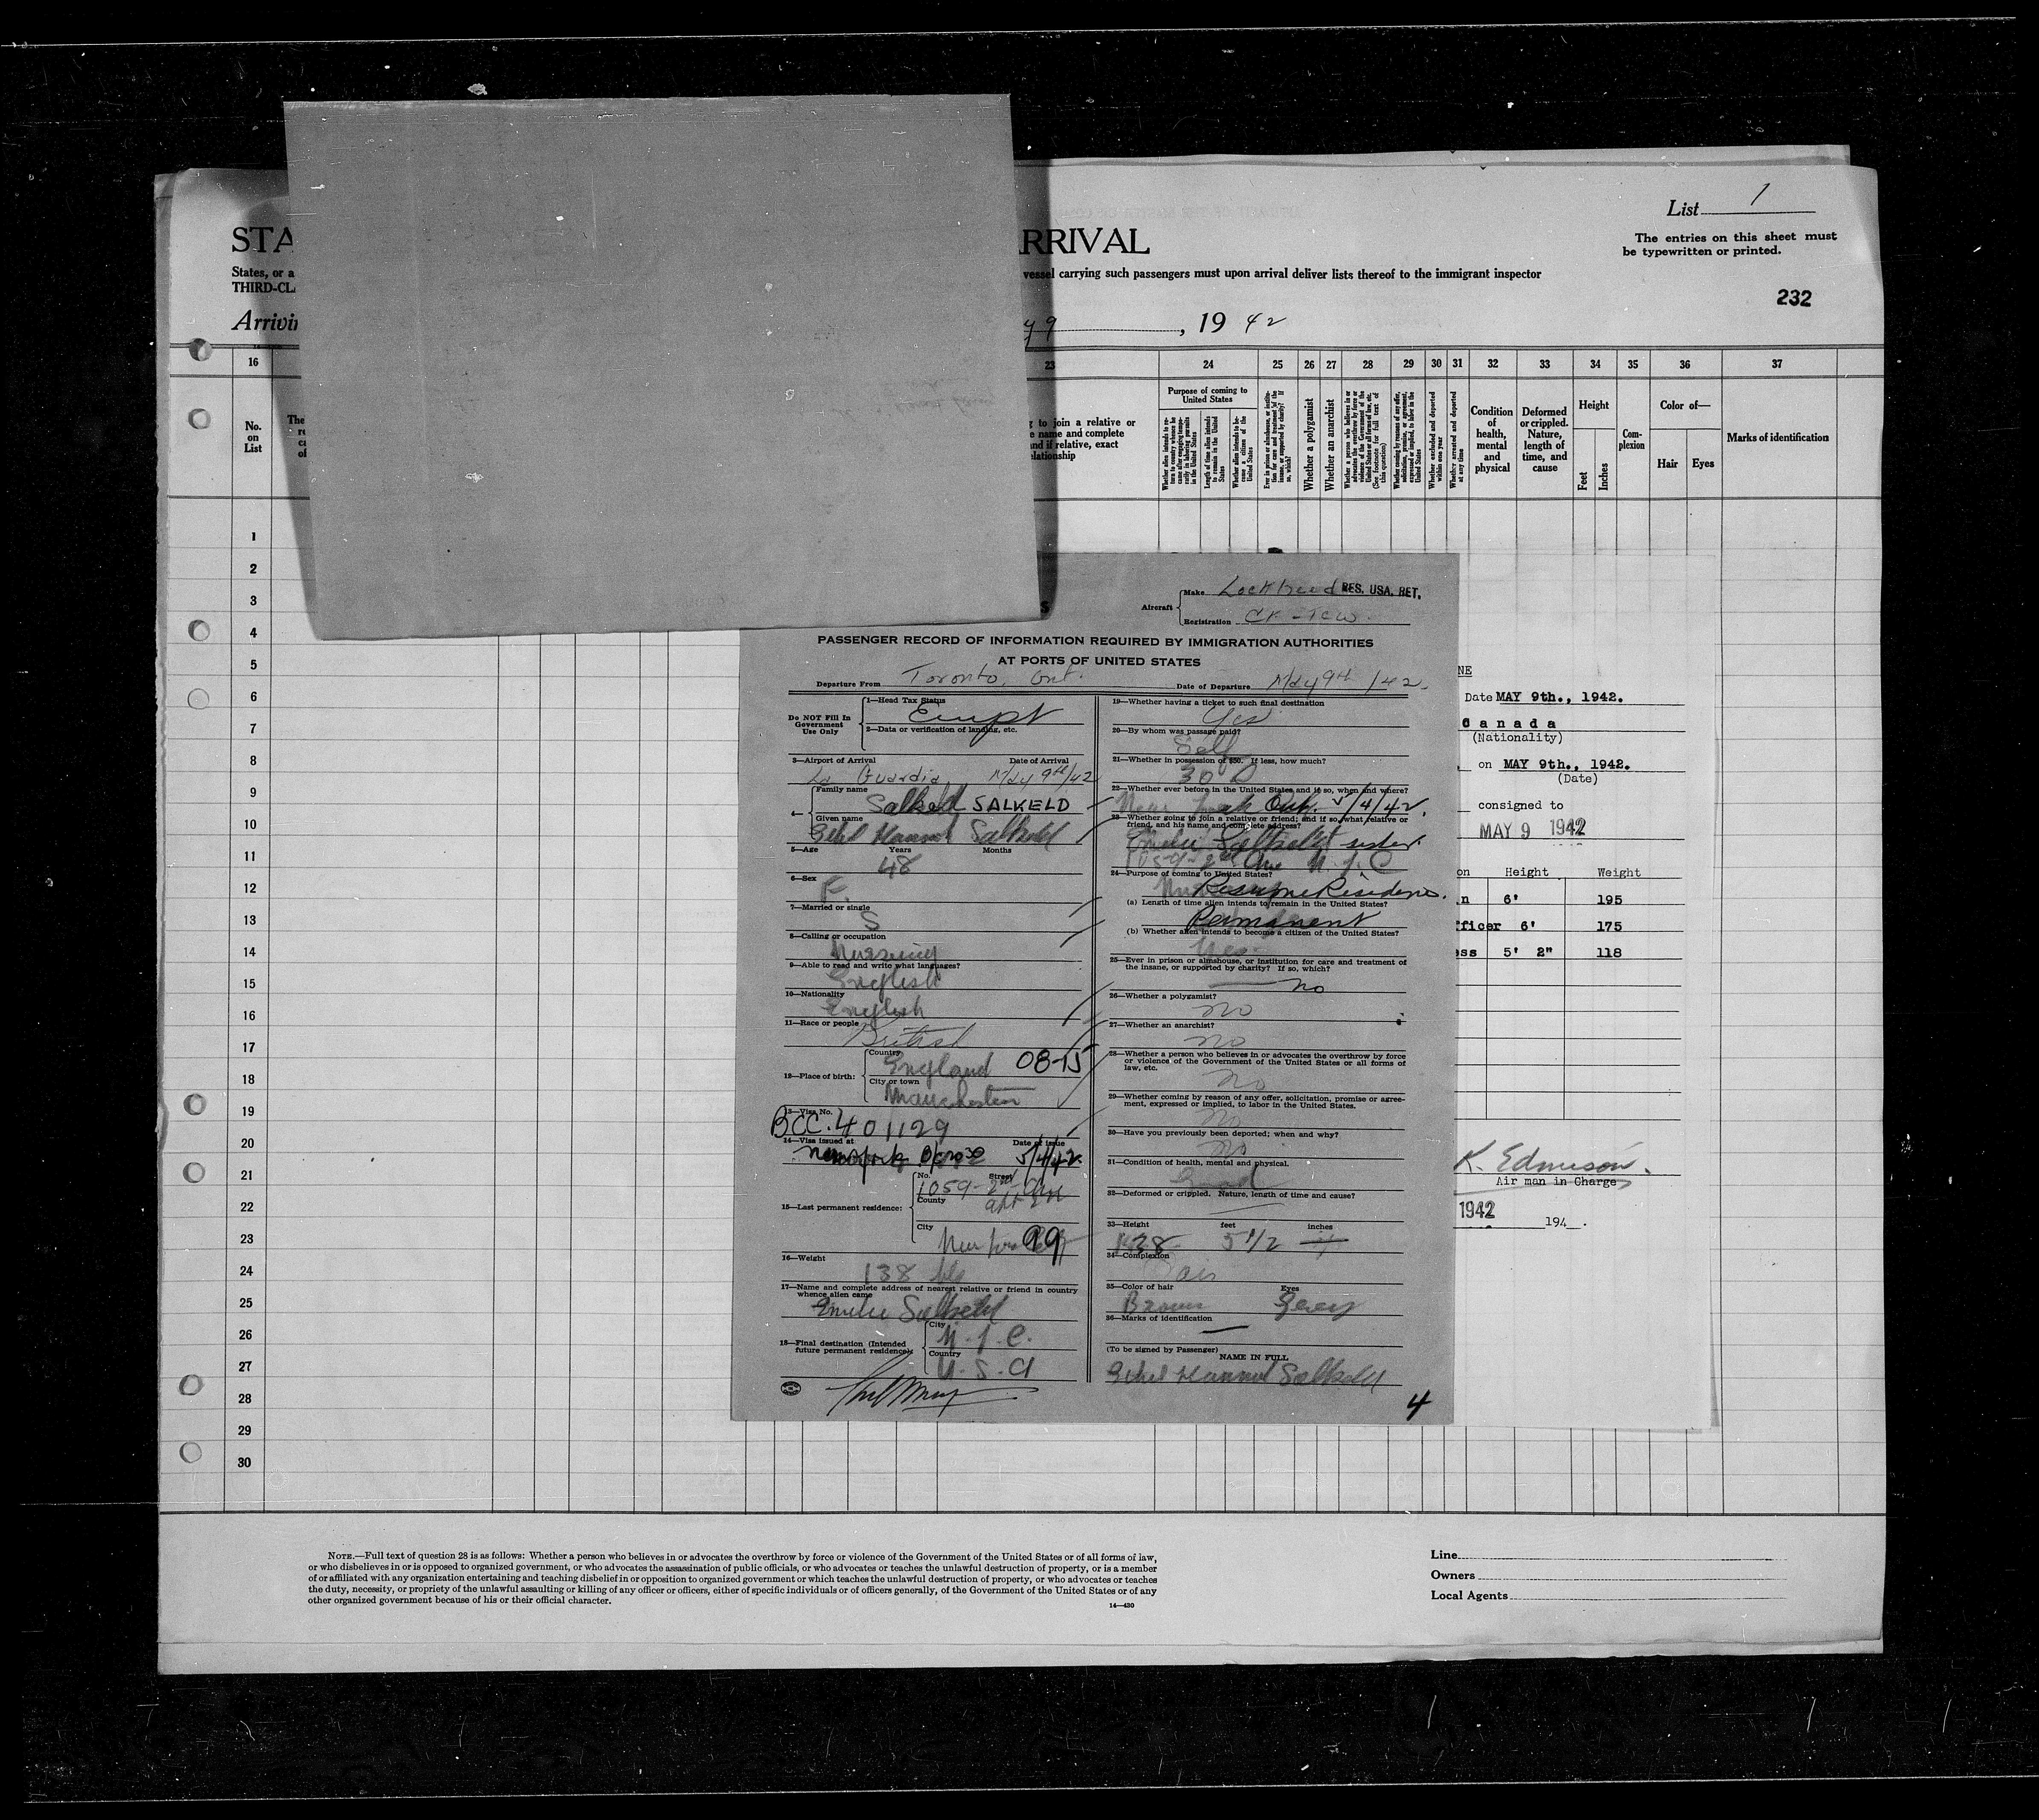 List 1
The entries on this sheet must
be typewritten or printed.
STA RRIVAL
States, or a vessel carrying such passengers must upon arrival deliver lists thereof to the immigrant inspector
THIRD-CL
232
Arrivin y 9, 19 42
16 23 24 25 26 27 28 29 30 31 32 33 34 35 36 37
No. on List
to join a relative or
name and complete
nd if relative, exact
lationship
Purpose of coming to United States
Whether a polygamist
Whether an anarchist
Whether excluded and deported within one year
Whether arrested and deported at any time
Condition of health, mental and physical
Deformed or crippled. Nature, length of time, and cause
Height
Feet Inches
Complexion
Color of—
Hair Eyes
Marks of identification
1
2
3
4
5
6
7
8
9
10
11
12
13
14
15
16
17
18
19
20
21
22
23
24
25
26
27
28
29
30
Aircraft Make Lockheed RES. USA. RET.
Registration CF-TCW.
PASSENGER RECORD OF INFORMATION REQUIRED BY IMMIGRATION AUTHORITIES
AT PORTS OF UNITED STATES
Departure From Toronto, Ont. Date of Departure May 9th /42.
Do NOT Fill In Government Use Only
1—Head Tax Status
Exmpt
2—Data or verification of landing, etc.
3—Airport of Arrival Date of Arrival
La Guardia May 9th/42
4— Family name
Salkeld SALKELD
Given name
Ethel Hannah Salkeld
5—Age Years Months
48
6—Sex
F.
7—Married or single
S
8—Calling or occupation
Nursing
9—Able to read and write what languages?
English
10—Nationality
English
11—Race or people
British
12—Place of birth: Country
England 08-15
City or town
Manchester
13—Visa No.
BCC. 401129
14—Visa issued at Date of issue
5/4/42
15—Last permanent residence: No. Street
1059-2nd Ave
County
City
99
16—Weight
138 lbs
17—Name and complete address of nearest relative or friend in country
whence alien came
Emilie Salkeld
18—Final destination (Intended
future permanent residence):
City
N.Y.C.
Country
U.S.A
19—Whether having a ticket to such final destination
Yes
20—By whom was passage paid?
Self
21—Whether in possession of $50. If less, how much?
30
22—Whether ever before in the United States and if so, when and where?
5/4/42.
23—Whether going to join a relative or friend; and if so, what relative or
friend, and his name and complete address?
Emilie Salkeld sister.
1059-2nd Ave N.Y.C
24—Purpose of coming to United States?
Resume Residence.
(a) Length of time alien intends to remain in the United States?
Permanent
(b) Whether alien intends to become a citizen of the United States?
Yes
25—Ever in prison or almshouse, or institution for care and treatment of
the insane, or supported by charity? If so, which?
no
26—Whether a polygamist?
no
27—Whether an anarchist?
no
28—Whether a person who believes in or advocates the overthrow by force
or violence of the Government of the United States or all forms of
law, etc.
no
29—Whether coming by reason of any offer, solicitation, promise or agree-
ment, expressed or implied, to labor in the United States.
no
30—Have you previously been deported; when and why?
no
31—Condition of health, mental and physical.
Good
32—Deformed or crippled. Nature, length of time and cause?
33—Height feet inches
5 1/2
34—Complexion
35—Color of hair Eyes
Brown Grey
36—Marks of identification
(To be signed by Passenger)
NAME IN FULL
Ethel Hannah Salkeld
4
NE
Date MAY 9th., 1942.
Canada
(Nationality)
on MAY 9th., 1942.
(Date)
consigned to
MAY 9 1942
on Height Weight
n 6' 195
fficer 6' 175
ess 5' 2" 118
K. Edmison.
Air man in Charge
1942
194 .
NOTE.—Full text of question 28 is as follows: Whether a person who believes in or advocates the overthrow by force or violence of the Government of the United States or of all forms of law,
or who disbelieves in or is opposed to organized government, or who advocates the assassination of public officials, or who advocates or teaches the unlawful destruction of property, or is a member
of or affiliated with any organization entertaining and teaching disbelief in or opposition to organized government or which teaches the unlawful destruction of property, or who advocates or teaches
the duty, necessity, or propriety of the unlawful assaulting or killing of any officer or officers, either of specific individuals or of officers generally, of the Government of the United States or of any
other organized government because of his or their official character.
14—430
Line
Owners
Local Agents